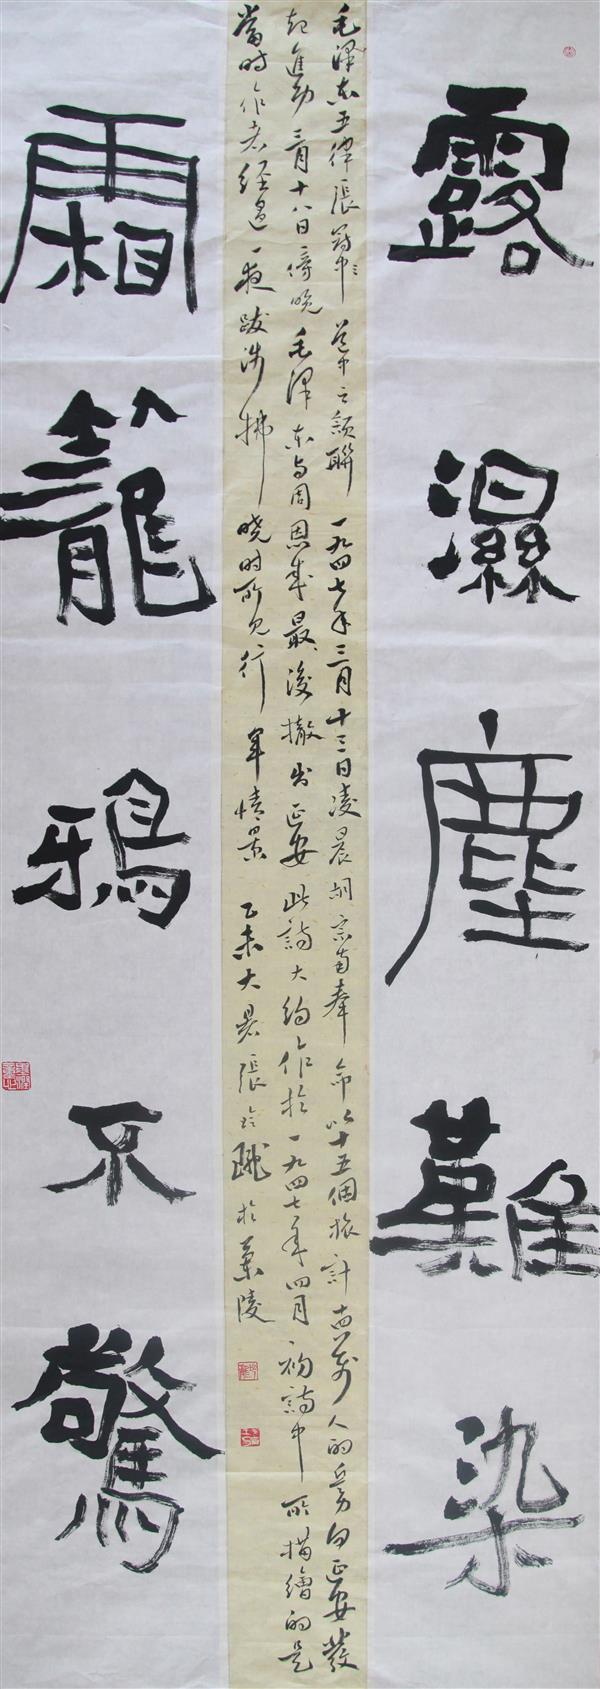 露濕塵難染
霜籠鴉不驚
毛澤东五律張冠道中之頷聯 一九四七年三月十三日凌晨胡宗南奉命以十五個旅計十四萬人的兵力向延安發
起進攻 三月十八日傍晚 毛澤东与周恩來最後撤出延安 此詩大約作於一九四七年四月初 詩中所描繪的是
當时作者經過一夜跋涉拂曉时所見行軍情景 乙未大暑張 於蘭陵